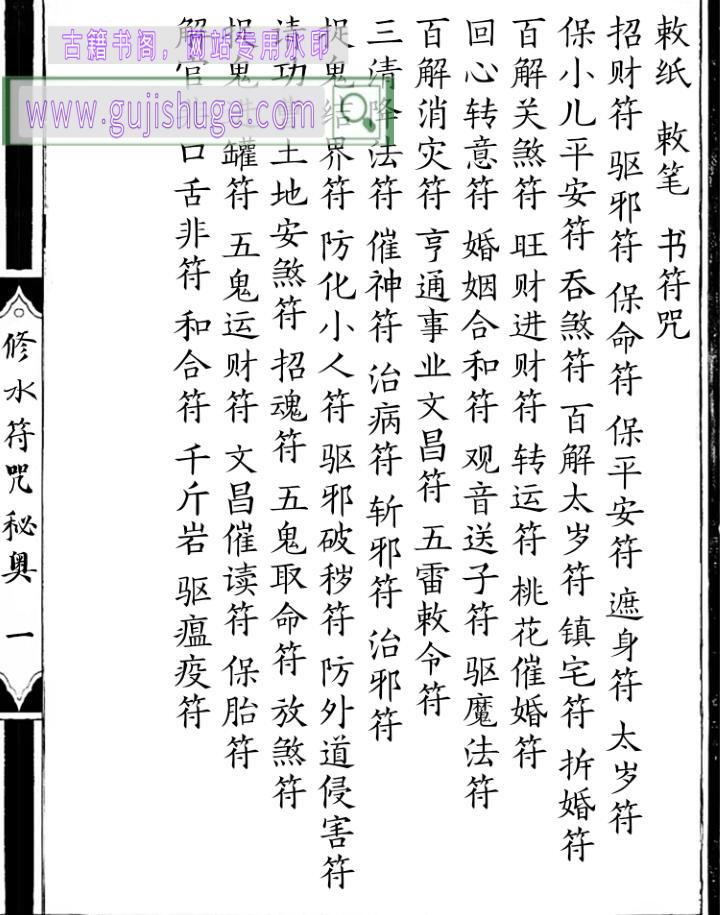 敕纸 敕笔 书符咒
招财符 驱邪符 保命符 保平安符 遮身符 太岁符
保小儿平安符 吞煞符 百解太岁符 镇宅符 拆婚符
百解关煞符 旺财进财符 转运符 桃花催婚符
回心转意符 婚姻合和符 观音送子符 驱魔法符
百解消灾符 亨通事业文昌符 五雷敕令符
三清降法符 催神符 治病符 斩邪符 治邪符
捉鬼结界符 防化小人符 驱邪破秽符 防外道侵害符
功土地安煞符 招魂符 五鬼取命符 放煞符
鬼罐符 五鬼运财符 文昌催读符 保胎符
解官口舌非符 和合符 千斤岩 驱瘟疫符
修水符咒秘奥 一
古籍书阁，网站专用水印
www.gujishuge.com